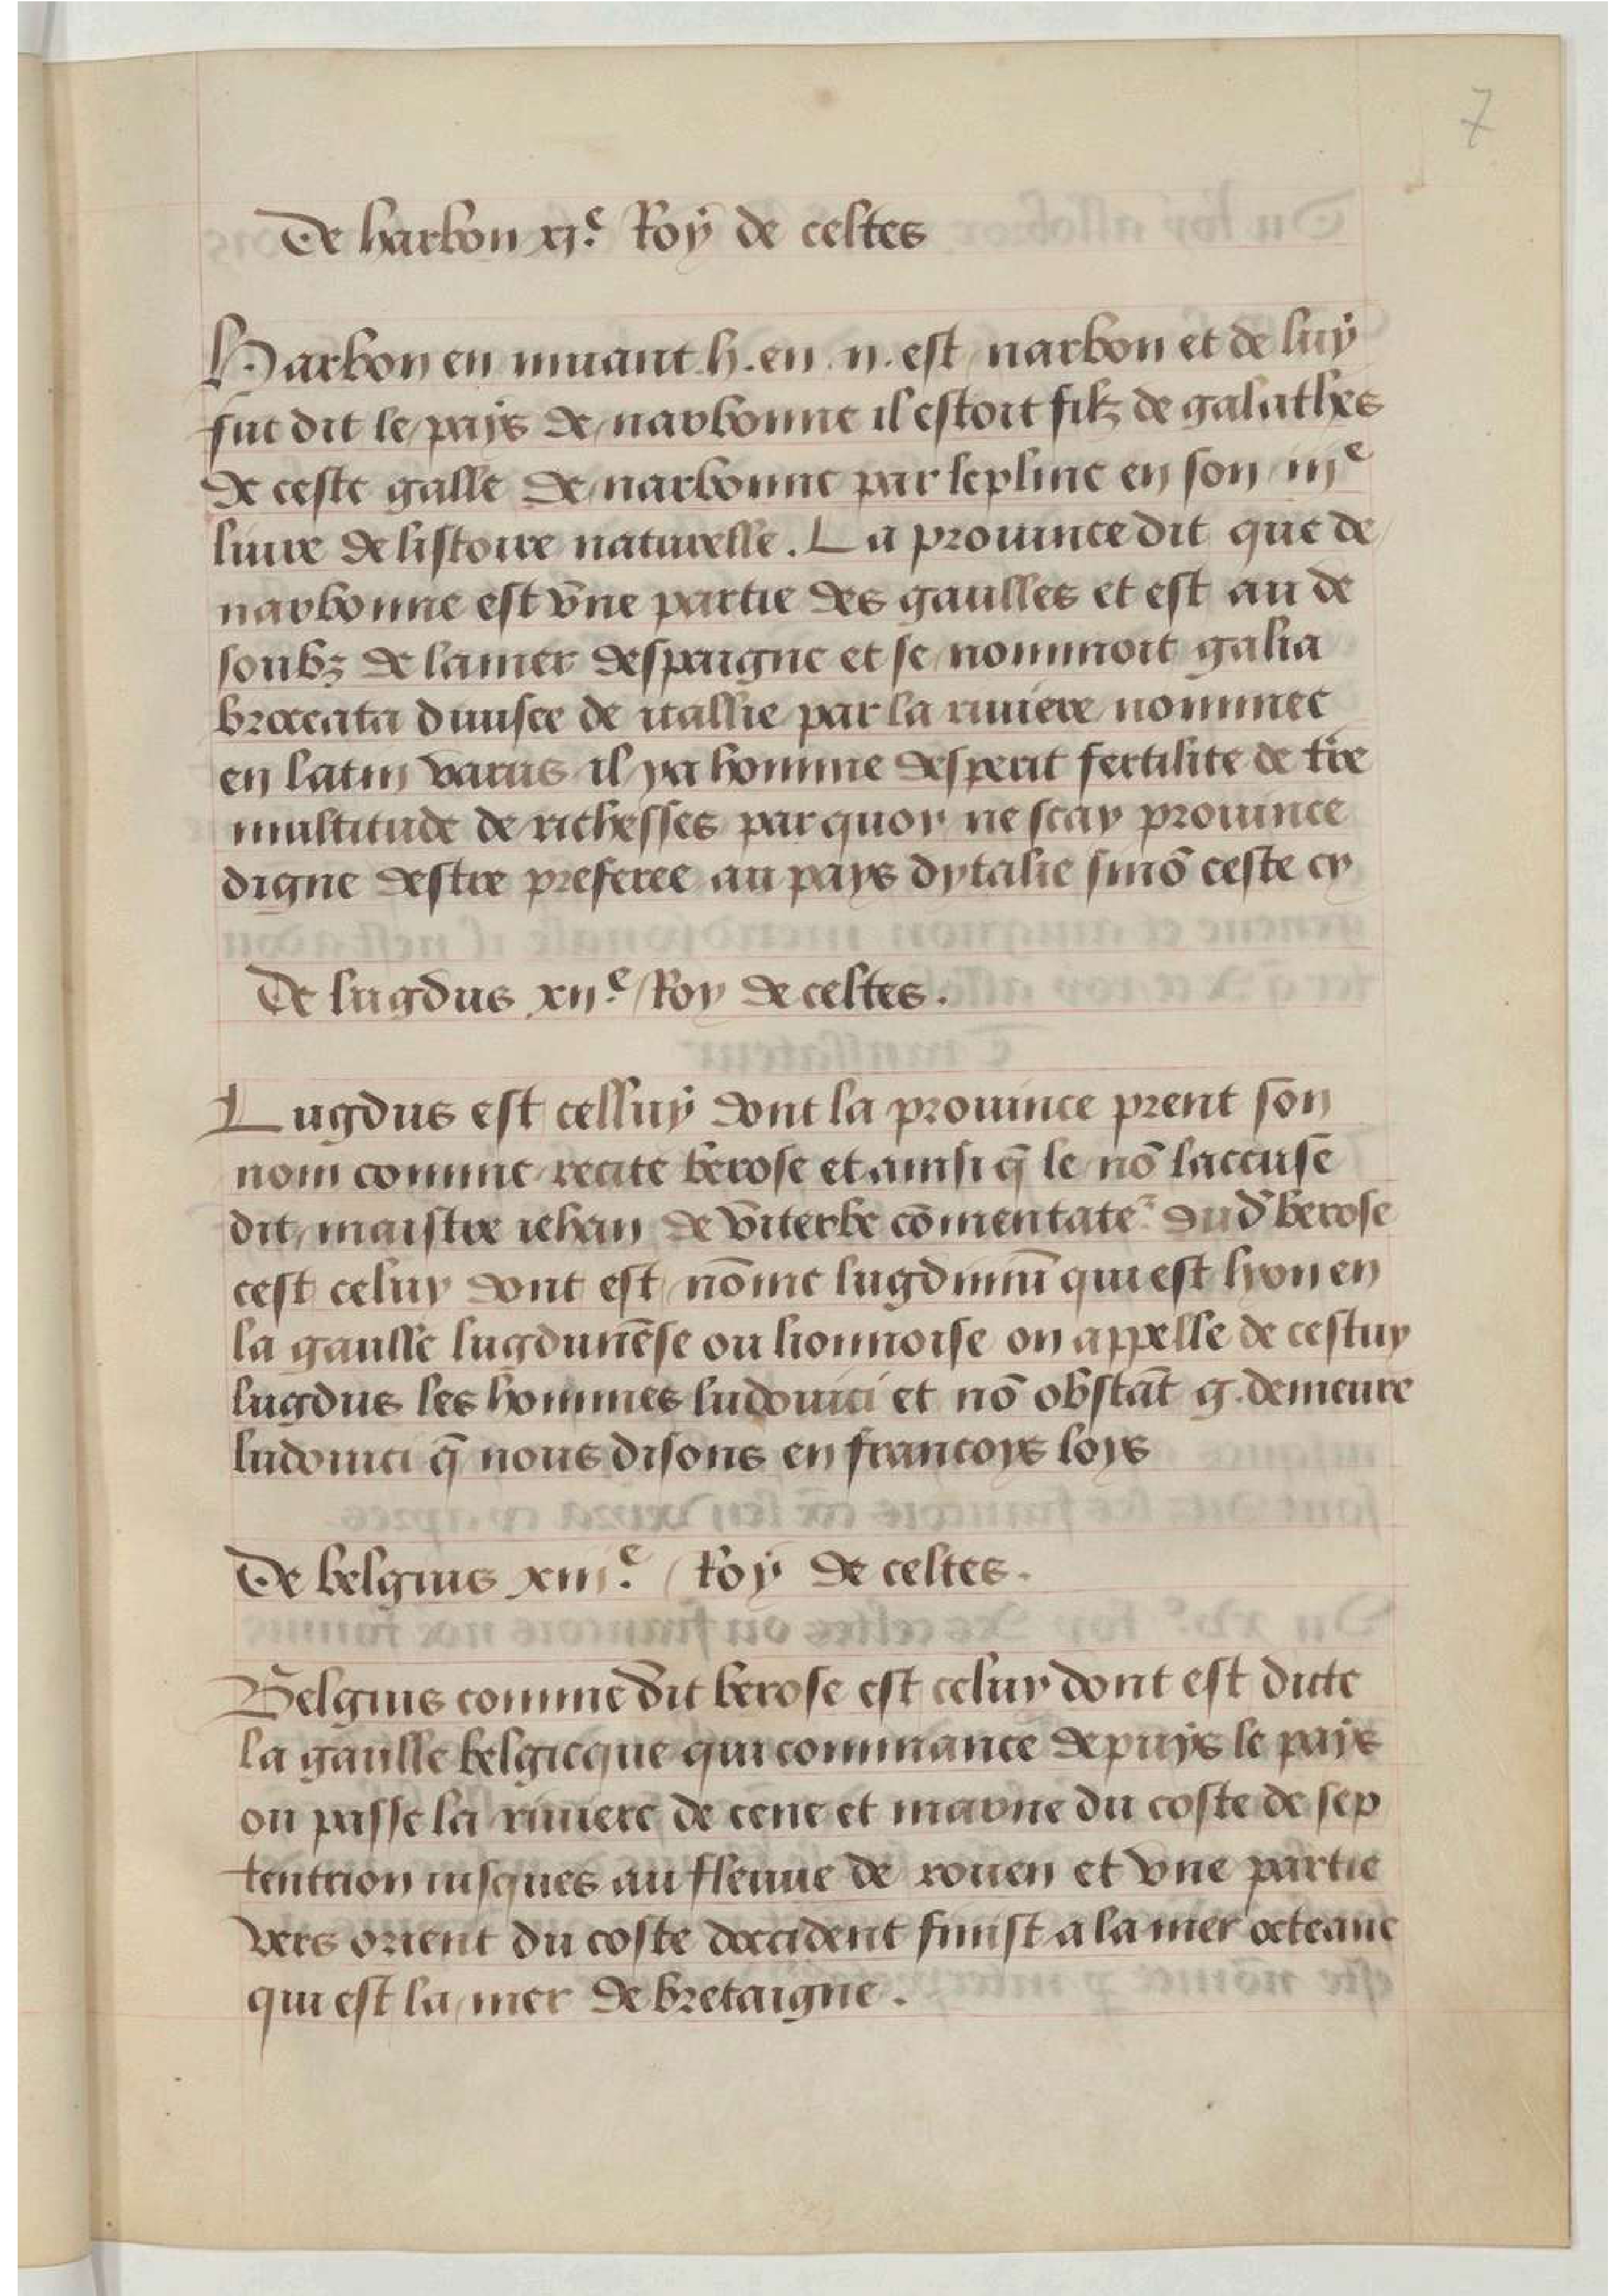 7
De harbon xi.e Roy de celtes
Harbon en muant .h. en .n. est narbon et de luy
fut dit le pays de narbonne il estoit filz de galathes
de ceste galle de narbonne parle pline en son iiie
liure de listoire naturelle. La prouince dit que de
narbonne est vne partie des gaulles et est au de
soubz de la mer despaigne et se nommoit galia
braccata diuisee de itallie par la riuiere nommee
en latin varus il y a homme desperit fertilite de tr̄e
multitude de richesses par quoy ne scay prouince
digne destre preferee au pays dytalie sinō ceste cy
De lugdus xii.e Roy de celtes.
Lugdus est celluy dont la prouince prent son
nom comme recite berose et ainsi q̄ le nō laccuse
dit maistre iehan de viterbe cōmentate᷑ dud̄ berose
cest celuy dont est nōme lugdunū qui est lyon en
la gaulle lugdunēse ou lionnoise on appelle de cestuy
lugdus les hommes ludouici et nō obstāt g. demeure
ludouici q̄ nous disons en francoys loys
De belgius xiii.e Roy de celtes.
Belgius comme dit berose est celuy dont est dicte
la gaulle belgicque qui commance depuys le pays
ou passe la riuiere de cene et marne du coste de sep
tentrion iusques au fleuue de rouen et vne partie
vers orient du coste doccident finist a la mer occeane
qui est la mer de bretaigne.